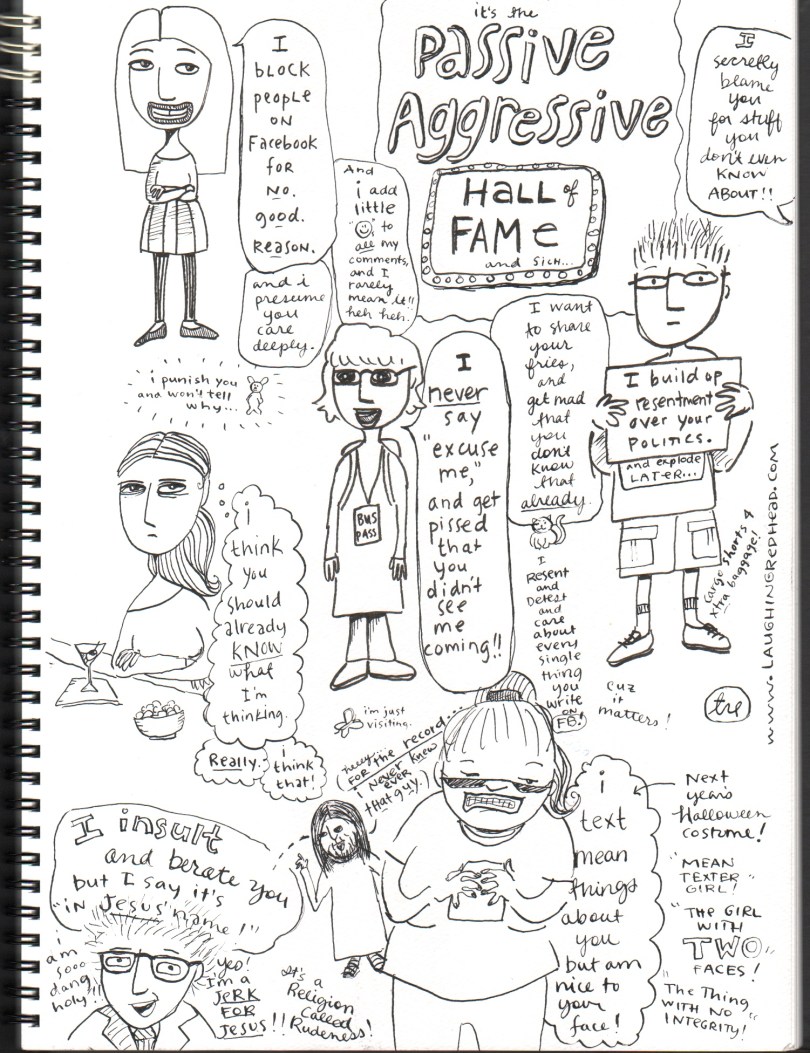 it's the
Passive
Aggressive
HALL of
FAME
and SICH...
I
block
people
ON
Facebook
for
NO.
good.
REASON.
and i
presume
you
care
deeply.
And
i add
little
to
all my
comments,
and I
rarely
mean it!!
heh heh.
I
secretly
blame
you
for stuff
you
don't even
KNOW
ABOUT!!
i punish you
and won't tell
why...
I
never
say
"excuse
me,"
and get
pissed
that
you
didn't
see
me
coming!!
BUS
PASS
I want
to share
your
fries,
and
get mad
that
you
don't
know
that
already.
I build up
resentment
over your
POLITICS.
and explode
LATER...
cargo shorts &
xtra baggage!
www.LAUGHINGREDHEAD.COM
i
think
you
should
already
KNOW
what
I'm
thinking.
Really.
i
think
that!
I
Resent
and
Detest
and
care
about
every
single
thing
you
write
ON
FB!
cuz
it
matters!
tre
i'm just
visiting.
FOR the record...
i never knew
ever
that guy.)
I insult
and berate you
but I say it's
"in Jesus' name!"
i
am
sooo
dang
holy!!
yes!
I'm a
JERK
FOR
JESUS!!
It's a
Religion
called
Rudeness!
i
text
mean
things
about
you
but am
nice to
your
face!
Next
year's
Halloween
costume!
"MEAN
TEXTER
GIRL!"
"THE GIRL
WITH
TWO
FACES!"
"The Thing
WITH NO
INTEGRITY!"